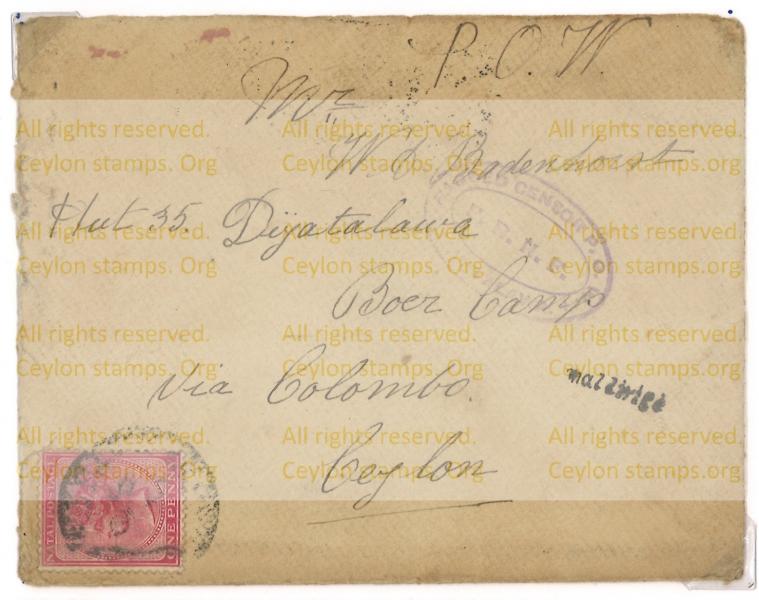 P. O. W.
Mr
W. C Badenhorst
Hut 35. Diyatalawa
Boer Camp
via Colombo.
Ceylon
PASSED CENSOR P. O.
NATAL POSTAGE
ONE PENNY
All rights reserved. All rights reserved. All rights reserved.
Ceylon stamps. Org Ceylon stamps. Org Ceylon stamps. Org
All rights reserved. All rights reserved. All rights reserved.
Ceylon stamps. Org Ceylon stamps. Org Ceylon stamps. Org
All rights reserved. All rights reserved. All rights reserved.
Ceylon stamps. Org Ceylon stamps. Org Ceylon stamps. Org
All rights reserved. All rights reserved. All rights reserved.
Ceylon stamps. Org Ceylon stamps. Org Ceylon stamps. Org